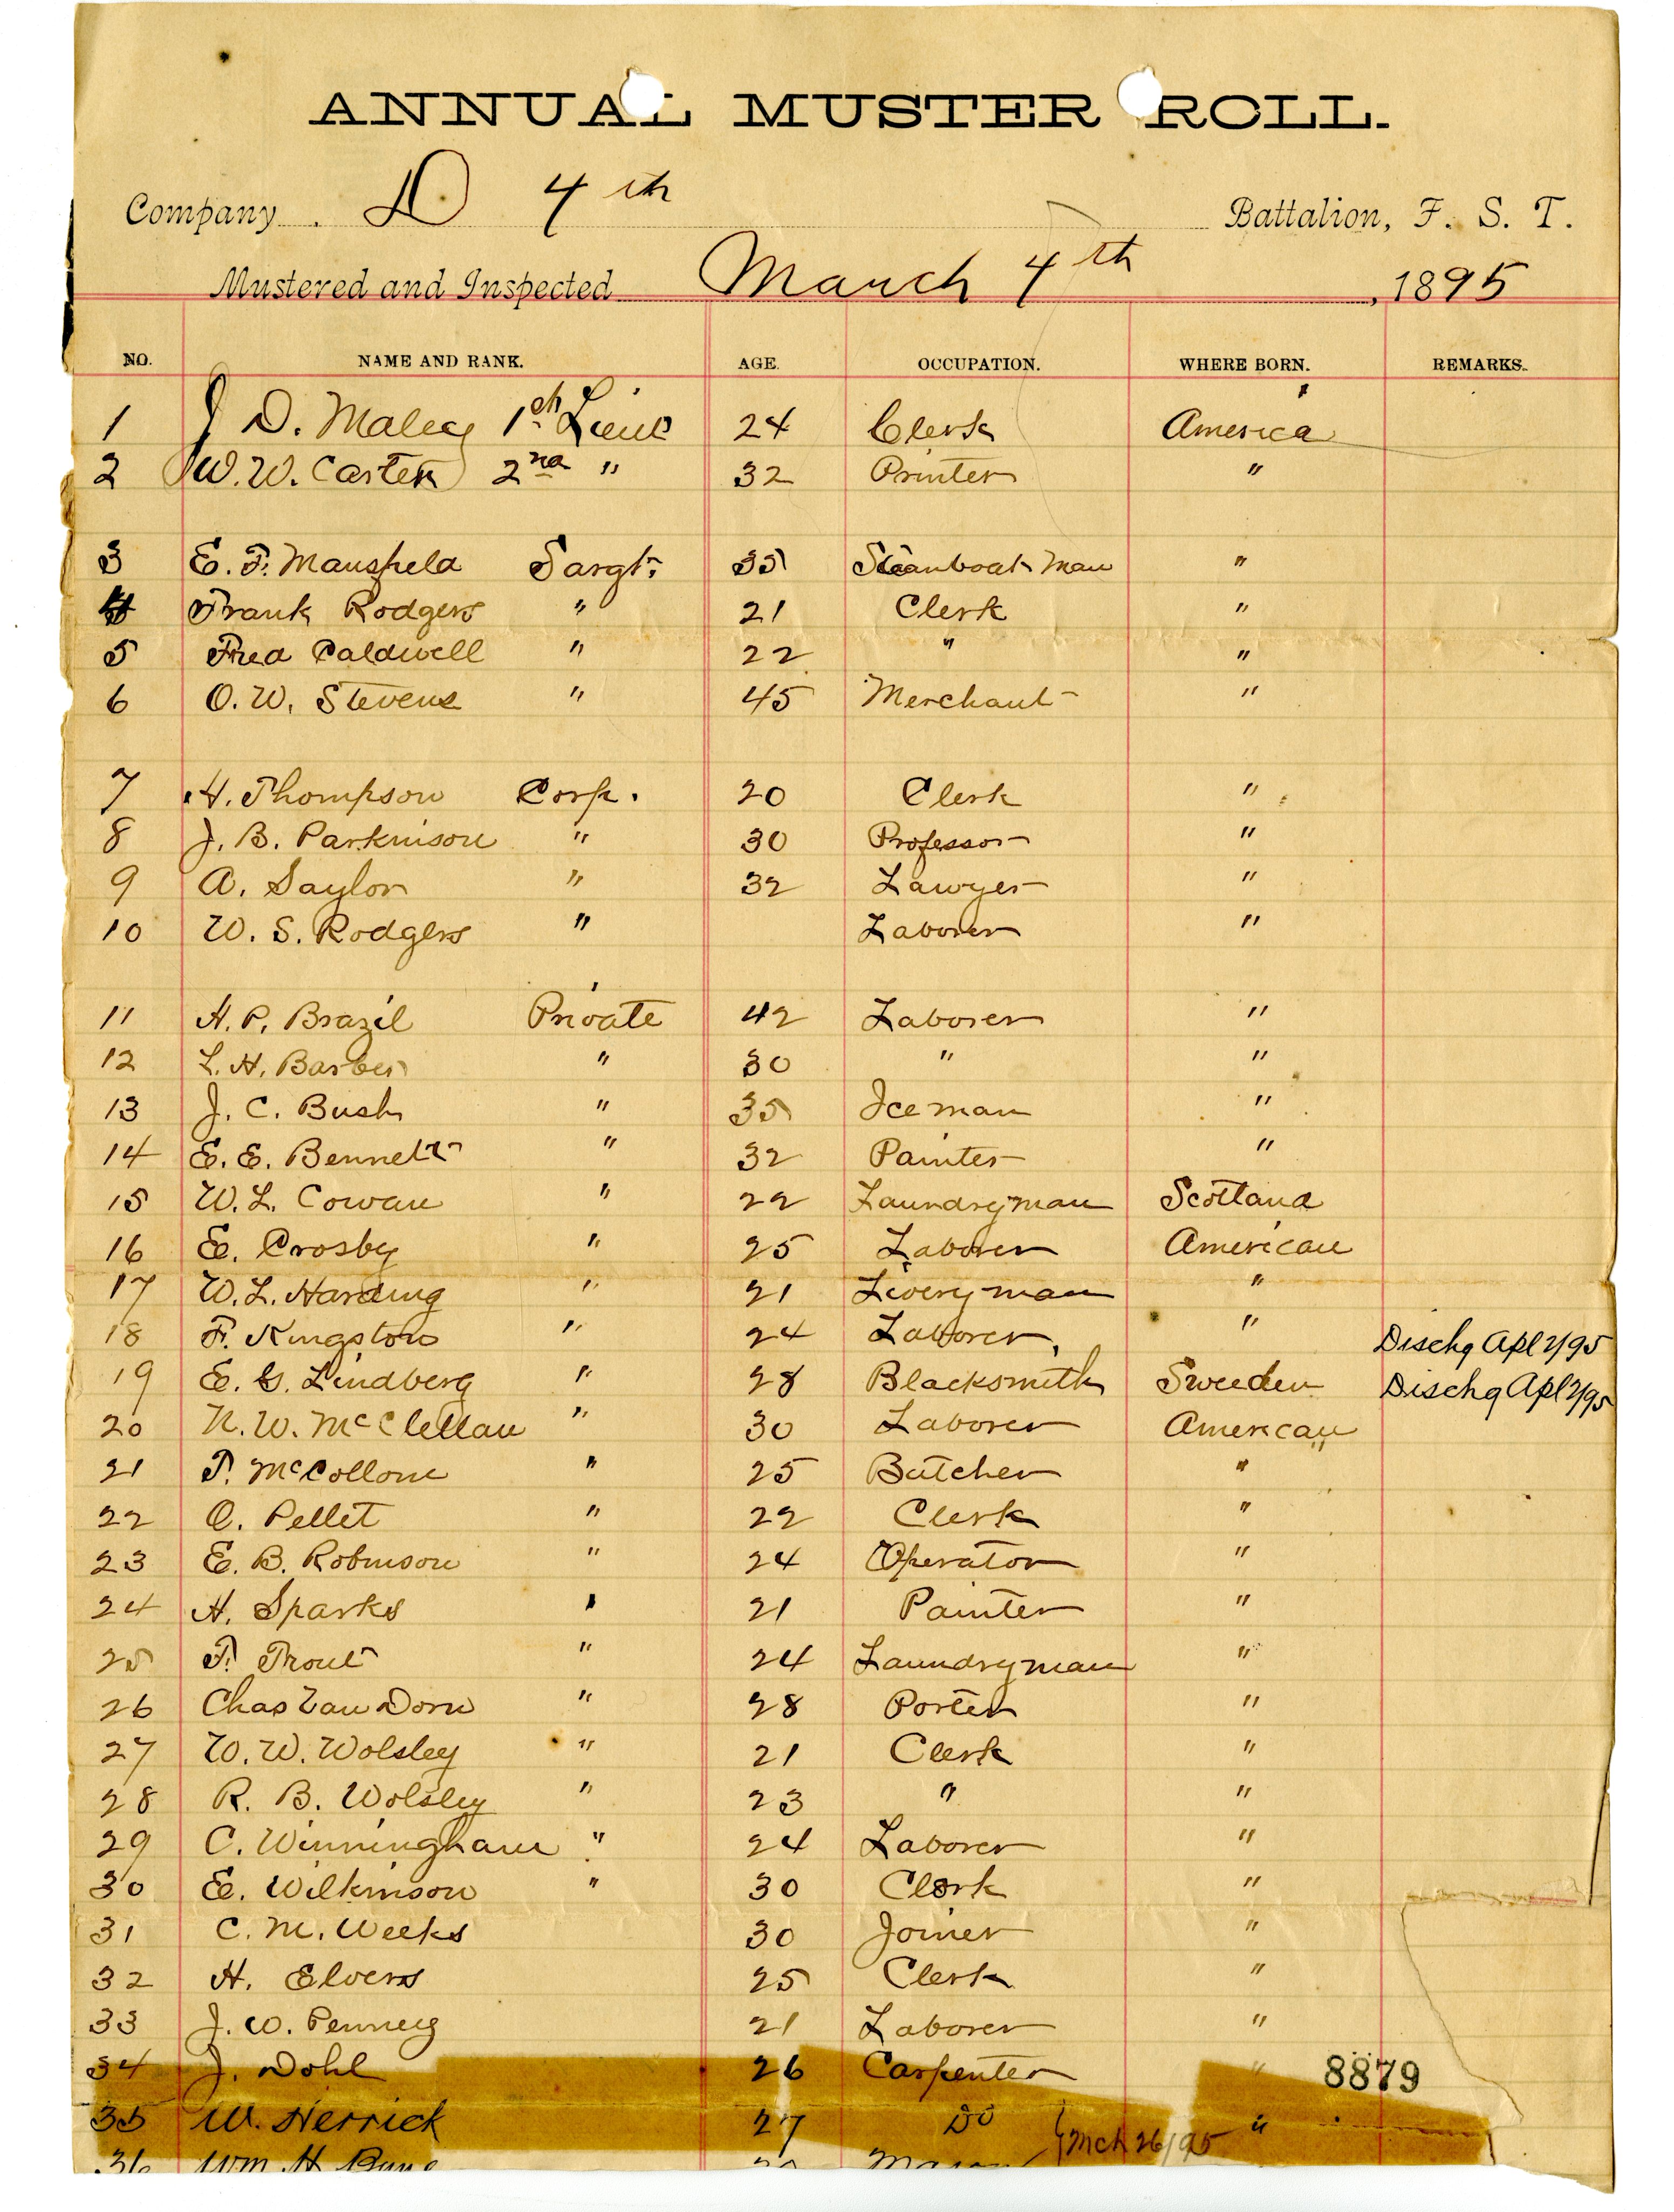 ANNUAL MUSTER ROLL.
Company D 4th Battalion, F. S. T.
Mustered and Inspected March 4th, 1895
NO. NAME AND RANK. AGE. OCCUPATION. WHERE BORN. REMARKS.
1 J D. Maley 1st Lieut 24 Clerk America
2 W. W. Carter 2nd " 32 Printer "
3 E. F. Mansfield Sargt. 35 Steamboat Man "
4 Frank Rodgers " 21 Clerk "
5 Fred Caldwell " 22 " "
6 O. W. Stevens " 45 Merchant "
7 H. Thompson Corp. 20 Clerk "
8 J. B. Parkinson " 30 Professor "
9 A. Saylor " 32 Lawyer "
10 W. S. Rodgers " Laborer "
11 H. P. Brazil Private 42 Laborer "
12 L. H. Barber " 30 " "
13 J. C. Bush " 35 Iceman "
14 E. E. Bennett " 32 Painter "
15 W. L. Cowan " 22 Laundryman Scotland
16 E. Crosby " 25 Laborer American
17 W. L. Harding " 21 Liveryman "
18 F. Kingston " 24 Laborer " Dischg Apl 2/95
19 E. G. Lindberg " 28 Blacksmith Sweeden Dischg Apl 2/95
20 N. W. McClellan " 30 Laborer American
21 T. McCollom " 25 Butcher "
22 O. Pellet " 22 Clerk "
23 E. B. Robinson " 24 Operator "
24 H. Sparks " 21 Painter "
25 F. Trout " 24 Laundryman "
26 Chas Van Dorn " 28 Porter "
27 W. W. Wolsley " 21 Clerk "
28 R. B. Wolsley " 23 " "
29 C. Winningham " 24 Laborer "
30 E. Wilkinson " 30 Clerk "
31 C. M. Weeks 30 Joiner "
32 H. Elvers 25 Clerk "
33 J. W. Penney 21 Laborer "
34 J. Dohl 26 Carpenter " 8879
35 W. Herrick 27 Do } Mch 26/95 "
36 Wm H